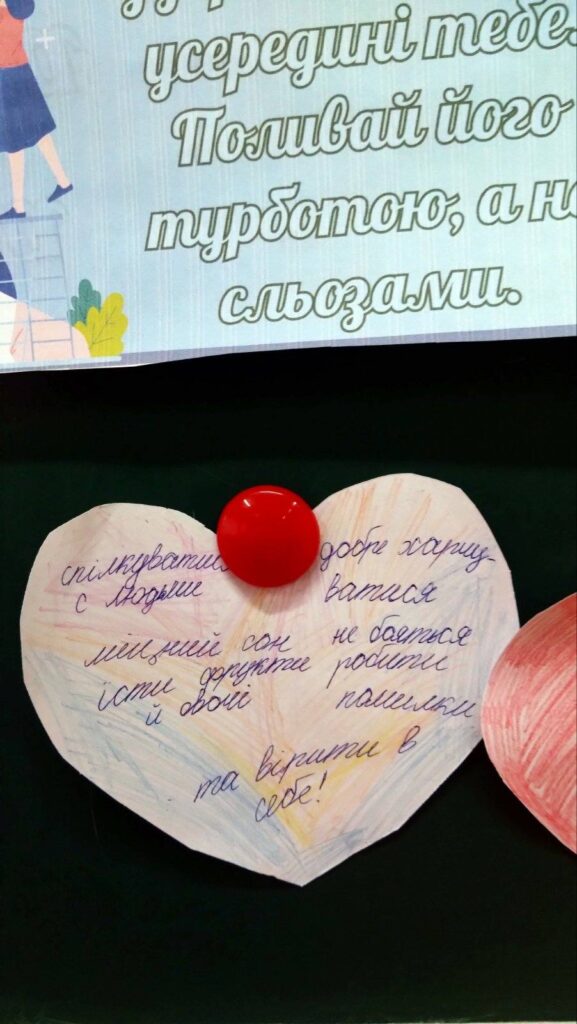 усередині тебе.
Поливай його
турботою, а не
сльозами.
спілкуватися
с людьми
міцний сон
їсти фрукти
й овочі
добре харчу-
ватися
не бояться
робити
помилки
та вірити в
себе!